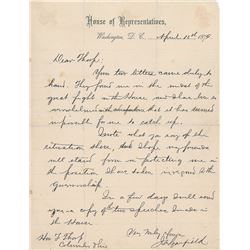 House of Representatives,
Washington, D. C. April 12th 1879.
Dear Thorp:
Your two letters came duly to
hand. They found me in the midst of the
great fight in the house and I have been so
overwhelmed with that it has seemed
impossible for me to catch up.
I note what you say of the
situation there, and hope my friends
will stand by the position taken in reference to the
Governorship.
In a few days I will send
you a copy of two speeches I made in
the House
Very Truly Yours
J. A. Garfield
Hon F. Thorp
Columbus Ohio